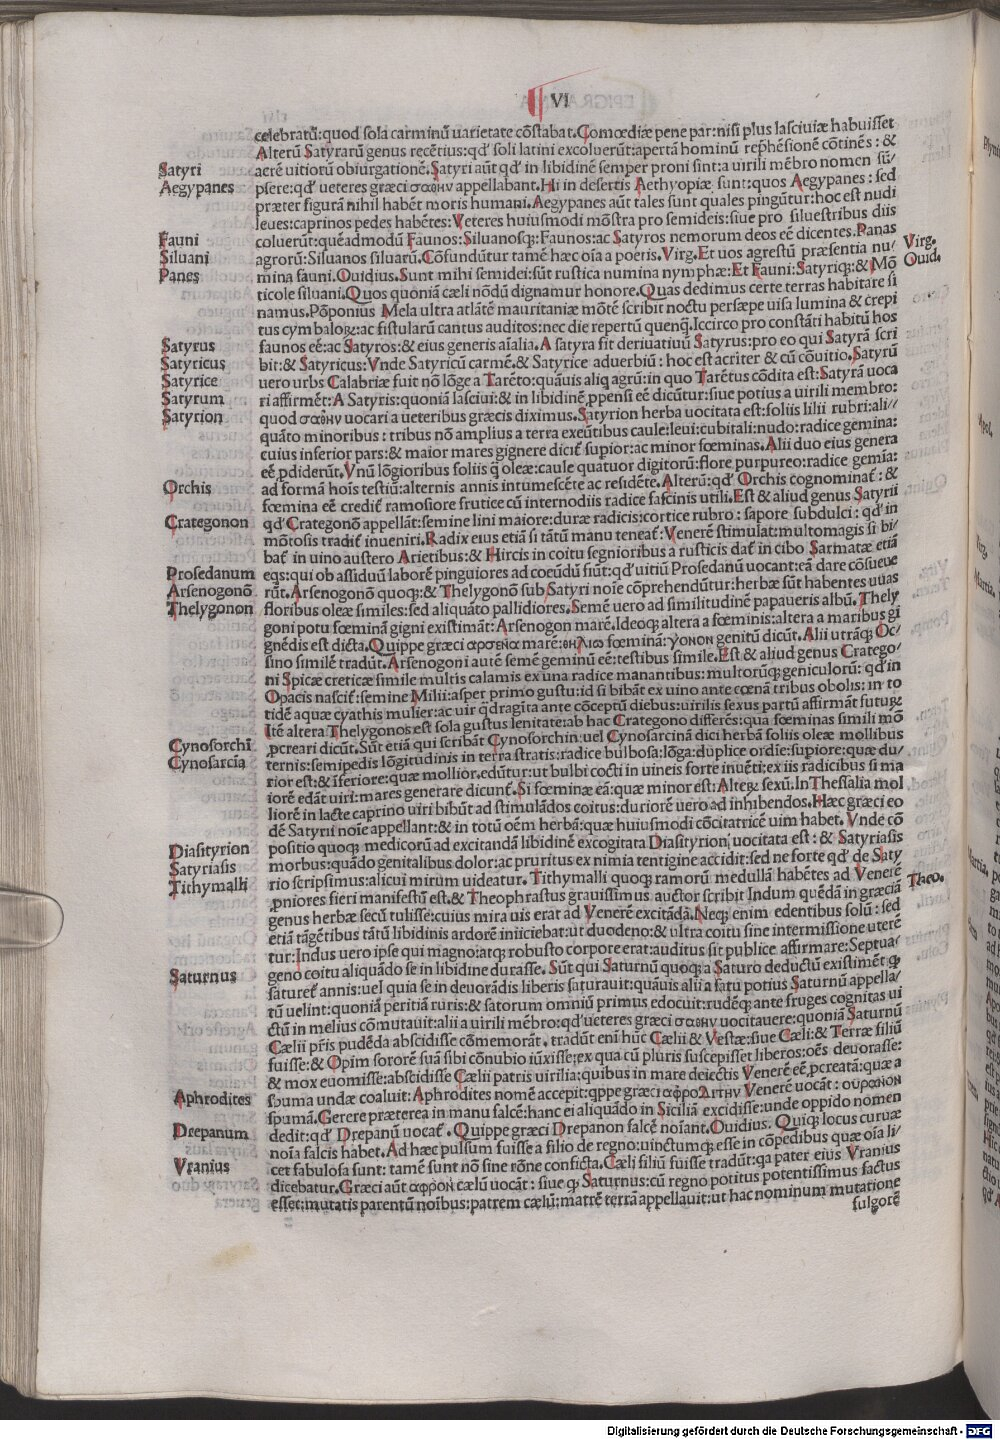 VI
celebratū:quod sola carminū uarietate cōstabat.Comœdiæ pene par:nisi plus lasciuiæ habuisset
Alterū Satyrarū genus recētius:qd' soli latini excoluerūt:apertā hominū rephēsionē cōtinēs:&
Satyri acrē uitiorū obiurgationē.Satyri aūt qd' in libidinē semper proni sint:a uirili mēbro nomen sū/
Aegypanes psere:qd' ueteres græci σαθην appellabant.Hi in desertis Aethyopiæ sunt:quos Aegypanes:sed
præter figurā nihil habēt moris humani.Aegypanes aūt tales sunt quales pingūtur:hoc est nudi
leues:caprinos pedes habētes:Veteres huiusmodi mōstra pro semideis:siue pro siluestribus diis
Fauni coluerūt:quēadmodū Faunos:Siluanosq;:Faunos:ac Satyros nemorum deos eē dicentes.Panas
Siluani agrorū:Siluanos siluarū.Cōfundūtur tamē hæc oīa a poetis.Virg.Et uos agrestū præsentia nu/ Virg.
Panes mina fauni.Ouidius.Sunt mihi semidei:sūt rustica numina nymphæ:Et Fauni:Satyriq;:& Mō Ouid.
ticole siluani.Quos quoniā cæli nōdū dignamur honore.Quas dedimus certe terras habitare si
namus.Pōponius Mela ultra atlātē mauritaniæ mōtē scribit noctu persæpe uisa lumina & crepi
tus cymbaloꝝ:ac fistularū cantus auditos:nec die repertū quenq̃.Iccirco pro constāti habitū hos
Satyrus faunos eē:ac Satyros:& eius generis aīalia.A satyra fit deriuatiuū Satyrus:pro eo qui Satyrā scri
Satyricus bit:& Satyricus:Vnde Satyricū carmē:& Satyrice aduerbiū:hoc est acriter & cū cōuitio.Satyrū
Satyrice uero urbs Calabriæ fuit nō lōge a Tarēto:quāuis aliq agrū:in quo Tarētus cōdita est:Satyrā uoca
Satyrum ri affirmēt:A Satyris:quoniā lasciui:& in libidinē ppensi eē dicūtur:siue potius a uirili membro:
Satyrion quod σαθην uocari a ueteribus græcis diximus.Satyrion herba uocitata est:foliis lilii rubri:ali//
quāto minoribus:tribus nō amplius a terra exeūtibus caule:leui:cubitali:nudo:radice gemina:
cuius inferior pars:& maior mares gignere dicit̃ supior:ac minor fœminas.Alii duo eius genera
eē pdiderūt.Vnū lōgioribus foliis q̄ oleæ:caule quatuor digitorū:flore purpureo:radice gemīa:
Orchis ad formā hoīs testiū:alternis annis intumescēte ac residēte.Alterū:qd' Orchis cognominat̃:&
fœmina eē credit̃ ramosiore frutice cū internodiis radice fascinis utili.Est & aliud genus Satyrii
Crategonon qd' Crategonō appellāt:semine lini maiore:duræ radicis:cortice rubro:sapore subdulci:qd' in
mōtosis tradit̃ inueniri.Radix eius etiā si tātū manu teneat̃:Venerē stimulat:multomagis si bi/
bat̃ in uino austero Arietibus:& Hircis in coitu segnioribus a rusticis dat̃ in cibo Sarmatæ etiā
Prosedanum eqs:qui ob assiduū laborē pinguiores ad coeūdū fiūt:qd' uitiū Prosedanū uocant:eā dare cōsueue
Arsenogonō rūt.Arsenogonō quoq;:& Thelygonō sub Satyri noīe cōprehendūtur:herbæ sūt habentes uuas
Thelygonon floribus oleæ similes:sed aliquāto pallidiores.Semē uero ad similitudinē papaueris albū.Thely
goni potu fœminā gigni existimāt:Arsenogon marē.Ideoq; altera a fœminis:altera a maribus gi
gnēdis est dicta.Quippe græci αρσενα marē:θηλιω fœminā:γονον genitū dicūt.Alii utrāq; Oc/
sino similē tradūt.Arsenogoni autē semē geminū eē:testibus simile.Est & aliud genus Cratego/
ni Spicæ creticæ simile multis calamis ex una radice manantibus:multorūq; geniculorū:qd' in
Opacis nascit̃:semine Milii:asper primo gustu:id si bibāt ex uino ante cœnā tribus obolis:in to
tidē aquæ cyathis mulier:ac uir qdragīta ante cōceptū diebus:uirilis sexus partū affirmāt futurꝝ
Itē altera Thelygonos est sola gustus lenitate:ab hac Crategono differēs:qua fœminas simili mō
Cynosorchi pcreari dicūt.Sūt etiā qui scribāt Cynosorchin:uel Cynosarcinā dici herbā foliis oleæ mollibus
Cynosarcia ternis:semipedis lōgitudinis in terra stratis:radice bulbosa:lōga:duplice ordīe:supiore:quæ du/
rior est:& īferiore:quæ mollior.edūtur:ut bulbi cocti in uineis forte inuēti:ex iis radicibus si ma
iorē edāt uiri:mares generare dicunt̃.Si fœminæ eā:quæ minor est:Alterꝝ sexū.In Thessalia mol
liorē in lacte caprino uiri bibūt ad stimulādos coitus:duriorē uero ad inhibendos.Hæc græci eo
dē Satyrii noīe appellant:& in totū oēm herbā:quæ huiusmodi cōcitatricē uim habet.Vnde cō
Diasityrion positio quoq; medicorū ad excitandā libidinē excogitata Diasityrion uocitata est:& Satyriasis
Satyriasis morbus:quādo genitalibus dolor:ac pruritus ex nimia tentigine accidit:sed ne forte qd' de Saty
Tithymalli rio scripsimus:alicui mirum uideatur.Tithymalli quoq; ramorū medullā habētes ad Venerē
pniores fieri manifestū est.& Theophrastus grauissimus auctor scribit Indum quēdā in græciā Theo.
genus herbæ secū tulisse:cuius mira uis erat ad Venerē excitādā.Neq; enim edentibus solū:sed
etiā tāgētibus tātū libidinis ardorē iniiciebat:ut duodeno:& ultra coitu sine intermissione uterē
tur:Indus uero ipse qui magno:atq; robusto corpore erat:auditus sit publice affirmare:Septua/
geno coitu aliquādo se in libidine durasse.Sūt qui Saturnū quoq; a Saturo deductū existimēt ꝙ
Saturnus saturet̃ annis:uel quia se in deuorādis liberis saturauit:quāuis alii a satu potius Saturnū appella/
tū uelint:quoniā peritiā ruris:& satorum omniū primus edocuit:rudēq; ante fruges cognitas ui
ctū in melius cōmutauit:alii a uirili mēbro:qd' ueteres græci σαθην uocitauere:quoniā Saturnū
Cælii p̄ris pudēda abscidisse cōmemorāt.tradūt enī hūc Cælii & Vestæ:siue Cæli:& Terræ filiū
fuisse:& Opim sororē suā sibi cōnubio iūxisse:ex qua cū pluris suscepisset liberos:oēs deuorasse:
& mox euomisse:abscidisse Cælii patris uirilia:quibus in mare deiectis Venerē eē pcreatā:quæ a
Aphrodites spuma undæ coaluit:Aphrodites nomē accepit:qppe græci αφροΔιτην Venerē uocāt:ουρανον
spumā.Gerere præterea in manu falcē:hanc ei aliquādo in Siciliā excidisse:unde oppido nomen
Drepanum dedit:qd' Drepanū uocat̃.Quippe græci Drepanon falcē noīant.Ouidius.Quiq; locus curuæ
noīa falcis habet.Ad hæc pulsum fuisse a filio de regno:uinctumq; esse in cōpedibus quæ oīa li/
Vranius cet fabulosa sunt:tamē sunt nō sine rōne conficta.Cæli filiū fuisse tradūt:qa pater eius Vranius
dicebatur.Græci aūt αφρον cælū uocāt:siue ꝙ Saturnus:cū regno potitus potentissimus factus
esset:mutatis parentū noībus:patrem cælū:matrē terrā appellauit:ut hac nominum mutatione
fulgorē
Digitalisierung gefördert durch die Deutsche Forschungsgemeinschaft - DFG